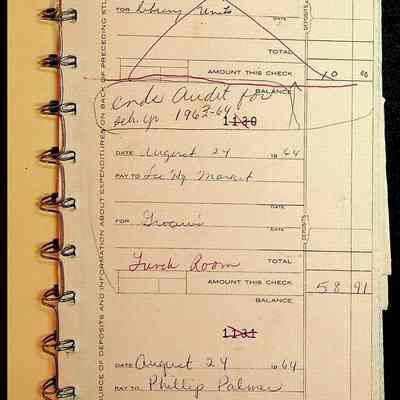 FOR Library Units
DATE
TOTAL
AMOUNT THIS CHECK
BALANCE
Ends Audit for
sch. yr. 1963-64
1130
DATE August 24 1964
PAY TO Market
DATE
FOR Groceries
Lunch Room TOTAL
AMOUNT THIS CHECK 58 91
BALANCE
1131
DATE August 24 1964
PAY TO Phillip Palmer
DEPOSITS
DEPOSITS
SOURCE OF DEPOSITS AND INFORMATION ABOUT EXPENDITURES ON BACK OF PRECEDING